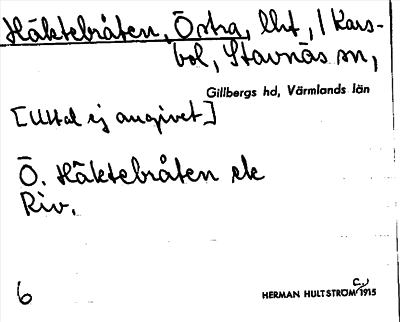 Häktebråten, Östra, lht, i Kars-
bol, Stavnäs sn,
Gillbergs hd, Värmlands län
[Uttal ej angivet]
Ö. Häktebråten ek
Riv.
6
HERMAN HULTSTRÖM c./1915